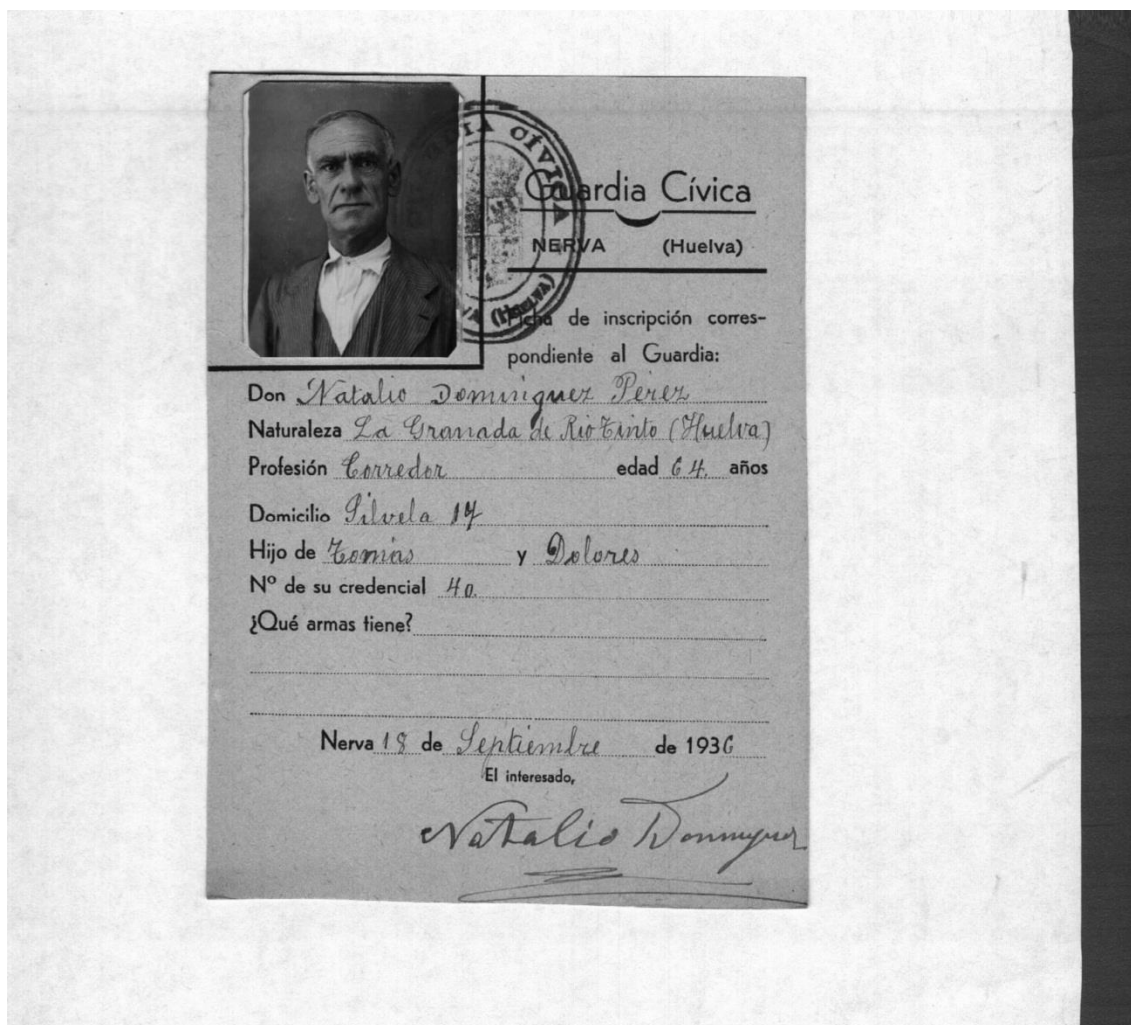 GUARDIA CÍVICA
NERVA (HUELVA)
Guardia Cívica
NERVA (Huelva)
Ficha de inscripción corres-
pondiente al Guardia:
Don Natalio Dominguez Pérez
Naturaleza La Granada de Rio Tinto (Huelva)
Profesión Corredor edad 64. años
Domicilio Silvela 17
Hijo de Tomás y Dolores
Nº de su credencial 40.
¿Qué armas tiene?
Nerva 18 de Septiembre de 1936
El interesado,
Natalio Dominguez